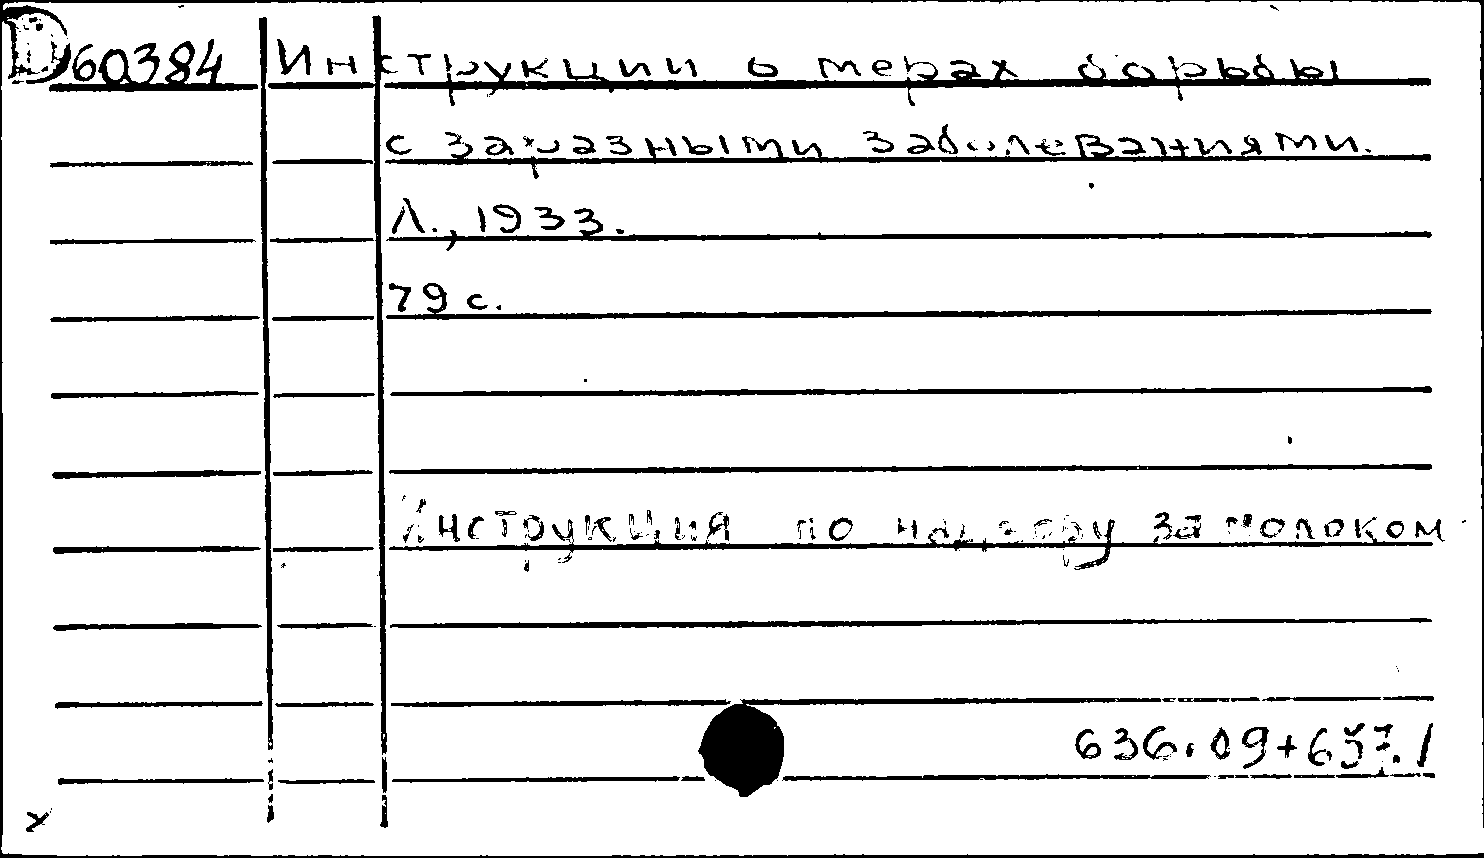 D60384 Инструкции о мерах борьбы
с заразными заболеваниями.
Л., 1933.
79 с.
Инструкция по надзору за молоком
636.09+637.1